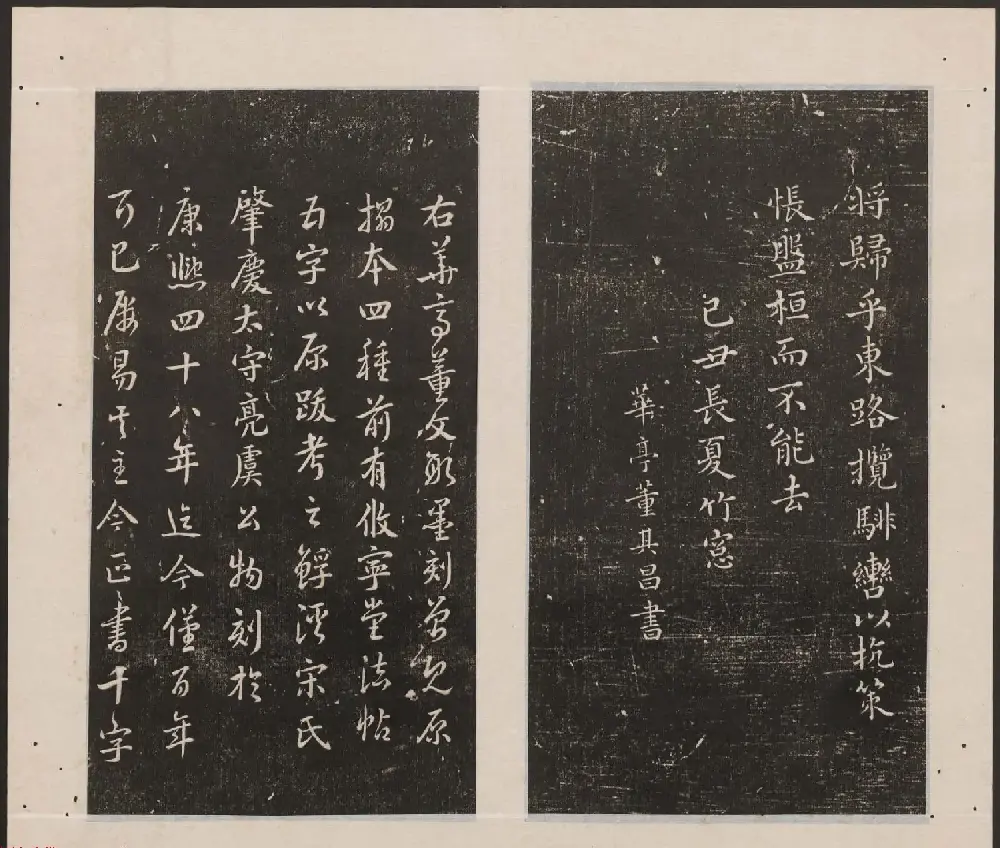 将歸乎東路攬騑轡以抗策
悵盤桓而不能去
己丑長夏竹窓
華亭董其昌書
右華亭董文敏墨刻曽見原
搨本四種前有攸寧堂法帖
五字以原跋考之鮮澄宋氏
肇慶太守亮虞公物刻於
康熙四十八年迄今僅百年
而已屢易其主今正書千字